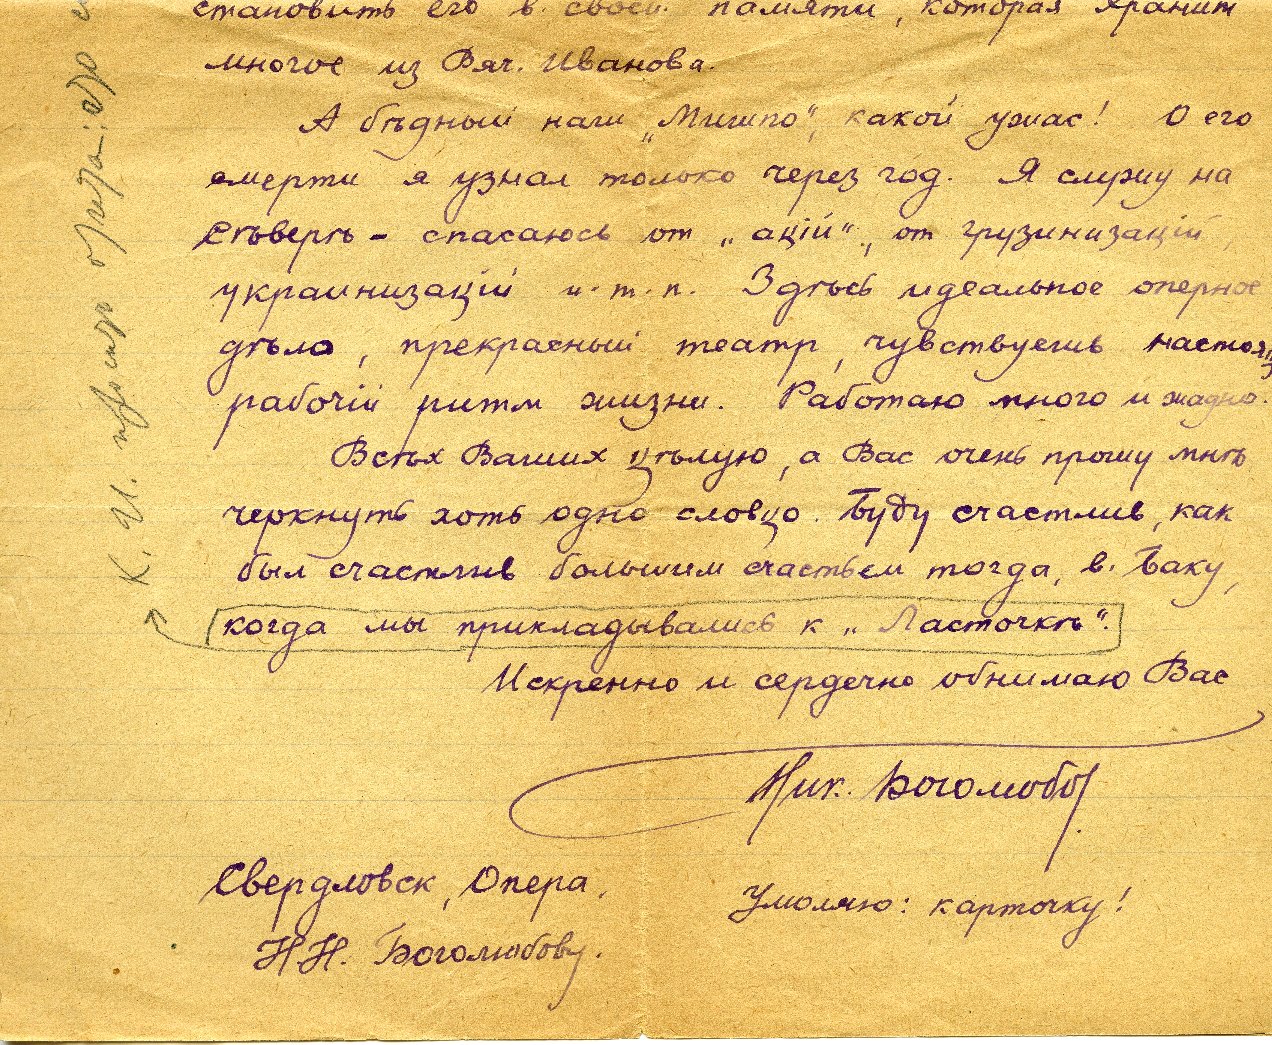 становить его в своей памяти, которая хранит
многое из Вяч. Иванова.
А бѣдный наш „Мишпо“, какой ужас! О его
смерти я узнал только через год. Я служу на
Сѣверѣ – спасаюсь от „аций“, от грузинизацій,
украинизацій и.т.п. Здѣсь идеальное оперное
дѣло, прекрасный театр, чувствуешь настоящ
рабочій ритм жизни. Работаю много и жадно.
Всѣх Ваших цѣлую, а Вас очень прошу мнѣ
черкнуть хоть одно словцо. Буду счастлив, как
был счастлив большим счастьем тогда, в Баку,
когда мы прикладывались к „Ласточкѣ“.
Искренно и сердечно обнимаю Вас
Ник. Боголюбов
Свердловск, Опера.
Н.Н. Боголюбову.
Умоляю: карточку!
К. И.